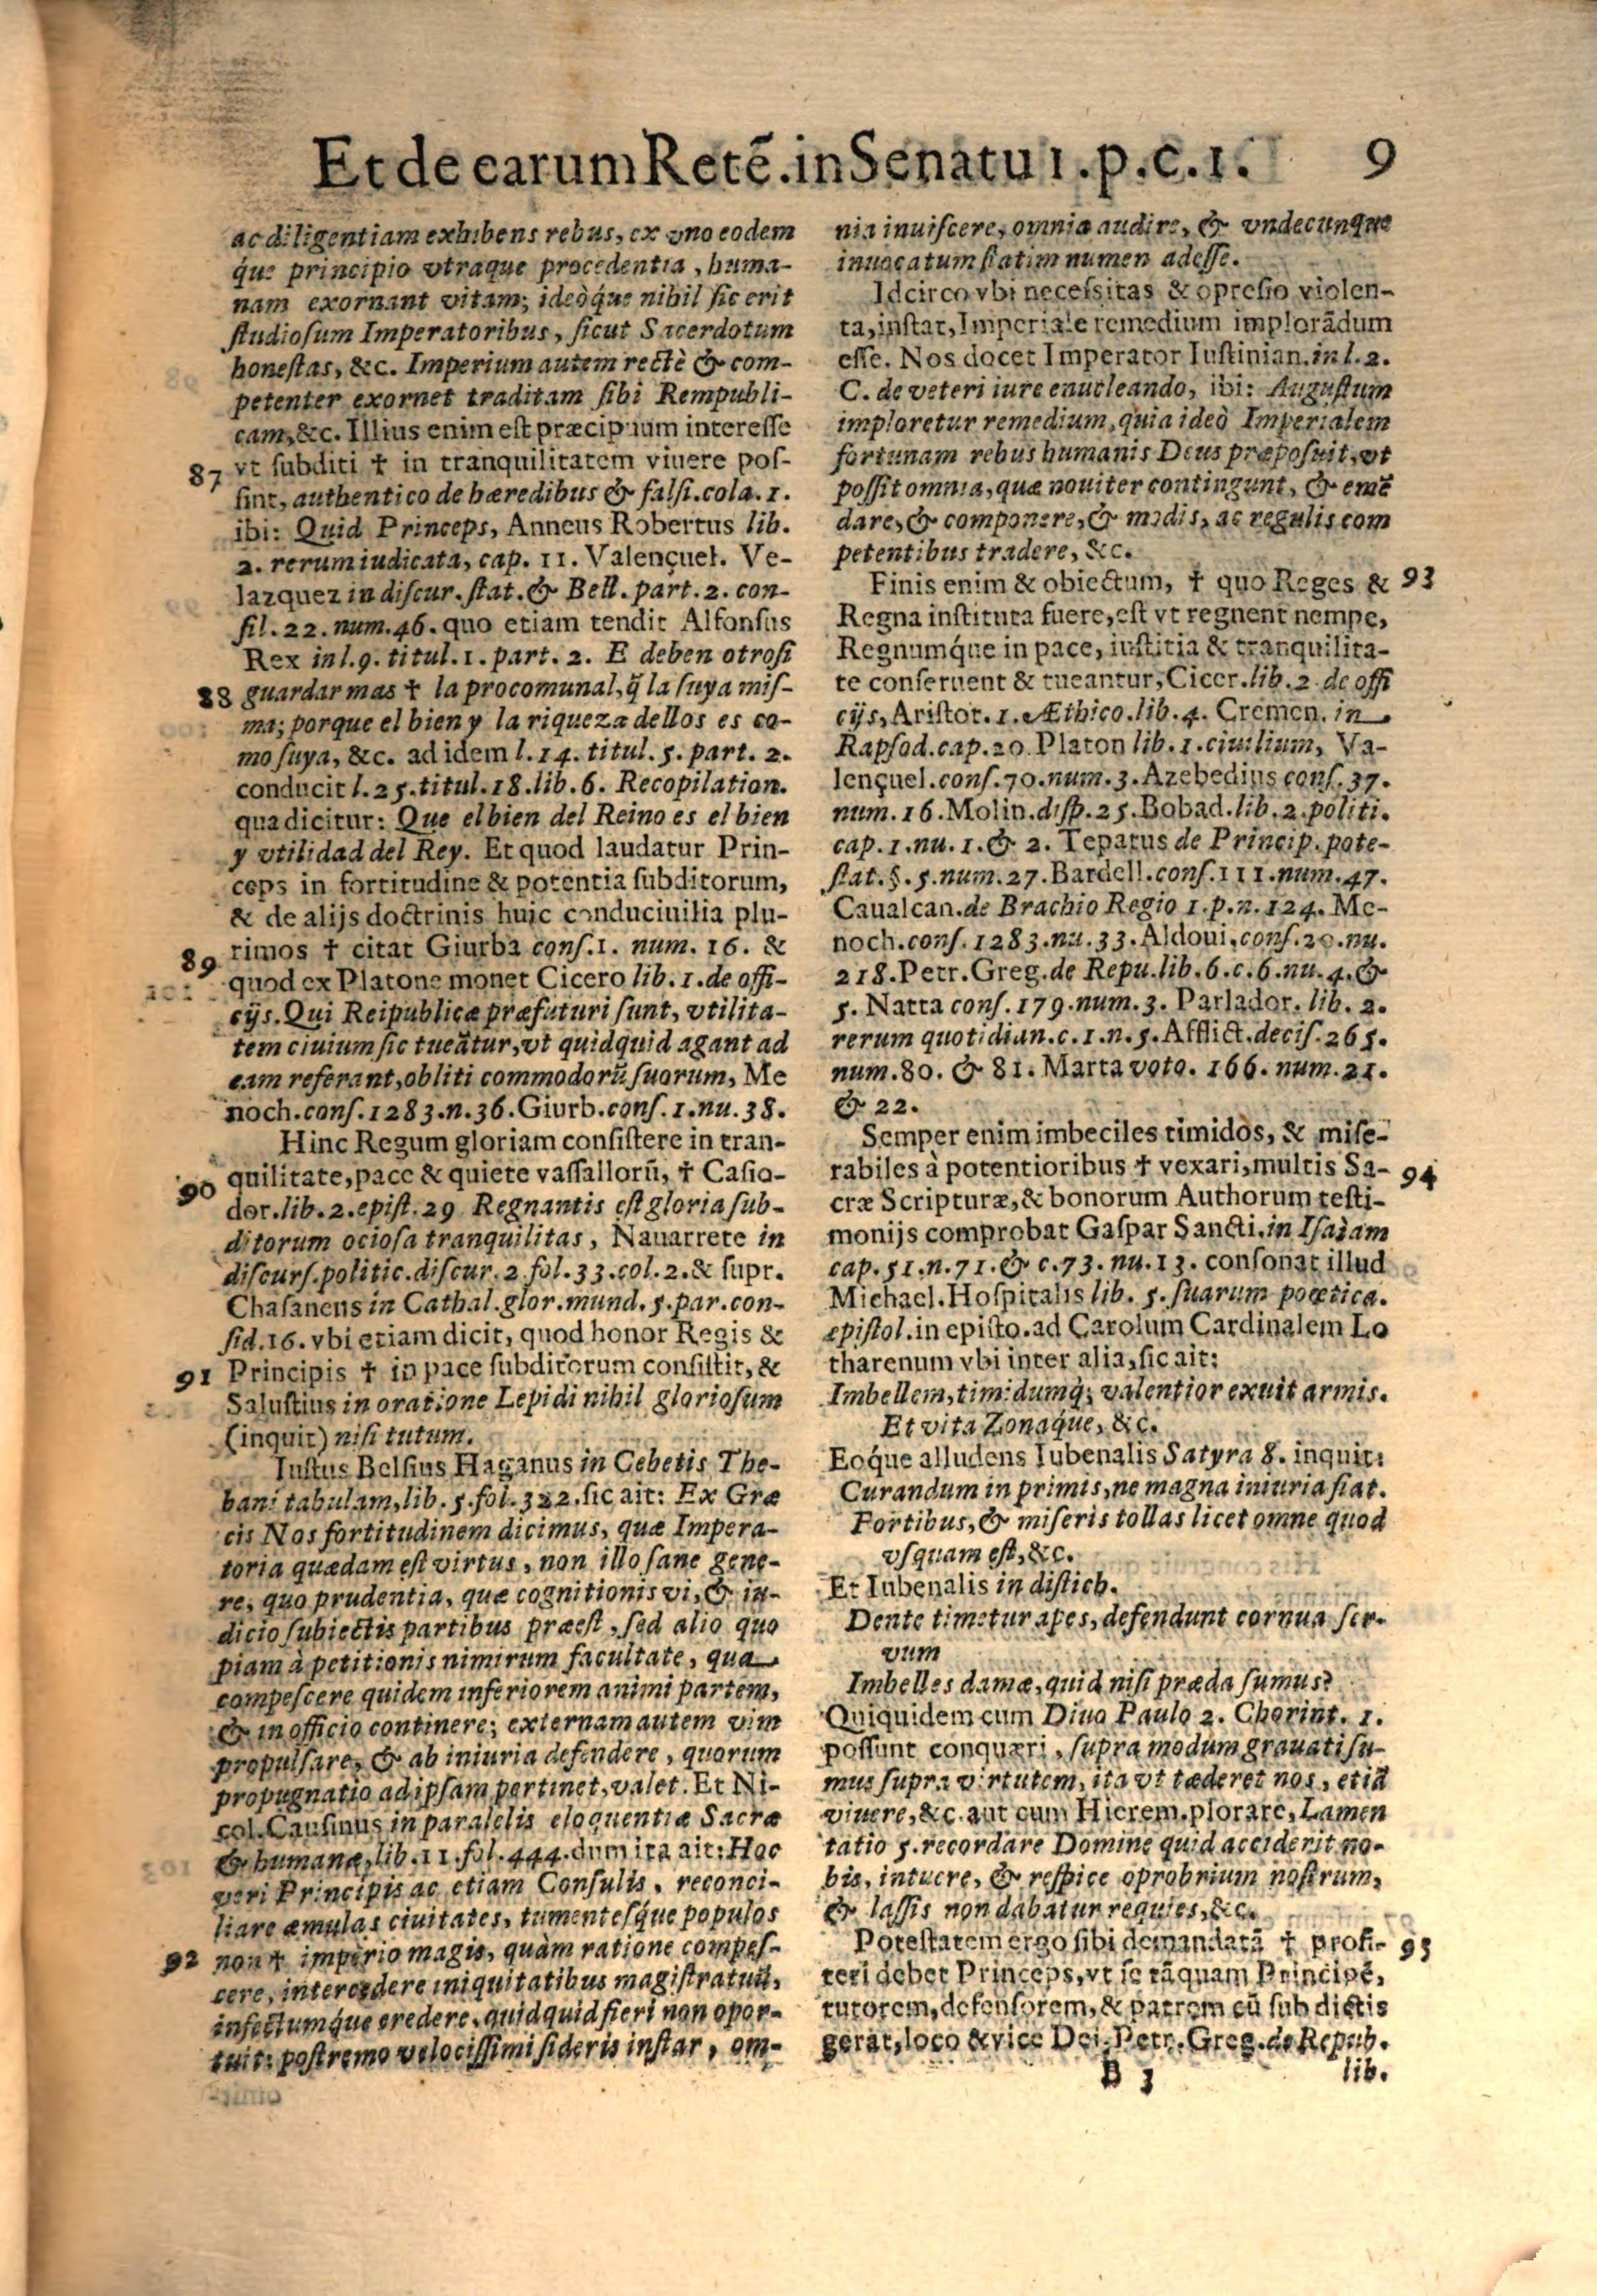 Et de earum Retẽ. in Senatu 1. p. c. 1. 9
ac diligentiam exhibens rebus, ex vno eodem
q́ue principio vtraque procedentia, huma-
nam exornant vitam; ideòq́ue nihil sic erit
studiosum Imperatoribus, sicut Sacerdotum
honestas, &c. Imperium autem rectè & com-
petenter exornet traditam sibi Rempubli-
cam, &c. Illius enim est præcipuum interesse
87 vt subditi † in tranquilitatem viuere pos-
sint, authentico de hæredibus & falsi. cola. 1.
ibi: Quid Princeps, Anneus Robertus lib.
2. rerum iudicata, cap. 11. Valençuel. Ve-
lazquez in discur. stat. & Bell. part. 2. con-
sil. 22. num. 46. quo etiam tendit Alfonsus
Rex in l. 9. titul. 1. part. 2. E deben otrosi
88 guardar mas † la procomunal, q̃ la suya mis-
ma; porque el bien y la riqueza dellos es co-
mo suya, &c. ad idem l. 14. titul. 5. part. 2.
conducit l. 25. titul. 18. lib. 6. Recopilation.
qua dicitur: Que el bien del Reino es el bien
y vtilidad del Rey. Et quod laudatur Prin-
ceps in fortitudine & potentia subditorum,
& de alijs doctrinis huic conduciuilia plu-
89 rimos † citat Giurba cons. 1. num. 16. &
quod ex Platone monet Cicero lib. 1. de offi-
cijs. Qui Reipublicæ præfuturi sunt, vtilita-
tem ciuium sic tueãtur, vt quidquid agant ad
eam referant, obliti commodorũ suorum, Me
noch. cons. 1283. n. 36. Giurb. cons. 1. nu. 38.
Hinc Regum gloriam consistere in tran-
90 quilitate, pace & quiete vassallorũ, † Casio-
dor. lib. 2. epist. 29 Regnantis est gloria sub-
ditorum ociosa tranquilitas, Nauarrete in
discurs. politic. discur. 2. fol. 33. col. 2. & supr.
Chasaneus in Cathal. glor. mund. 5. par. con-
sid. 16. vbi etiam dicit, quod honor Regis &
91 Principis † in pace subditorum consistit, &
Salustius in oratione Lepidi nihil gloriosum
(inquit) nisi tutum.
Iustus Belsius Haganus in Cebetis The-
bani tabulam, lib. 5. fol. 322. sic ait: Ex Græ
cis Nos fortitudinem dicimus, quæ Impera-
toria quædam est virtus, non illo sane gene-
re, quo prudentia, quæ cognitionis vi, & iu-
dicio subiectis partibus præest, sed alio quo
piam à petitionis nimirum facultate, qua
compescere quidem inferiorem animi partem,
& in officio continere; externam autem vim
propulsare, & ab iniuria defendere, quorum
propugnatio ad ipsam pertinet, valet. Et Ni-
col. Causinus in paralelis eloquentiæ Sacræ
& humanæ, lib. 11. fol. 444. dum ita ait: Hoc
veri Principis ac etiam Consulis, reconci-
liare æmulas ciuitates, tumentesq́ue populos
92 non † imperio magis, quàm ratione compes-
cere, intercedere iniquitatibus magistratuũ,
infectumq́ue credere, quidquid fieri non opor-
tuit: postremo velocissimi sideris instar, om-
nia inuiscere, omnia audire, & vndecunque
inuocatum statim numen adesse.
Idcirco vbi necessitas & opresio violen-
ta, instat, Imperiale remedium implorãdum
esse. Nos docet Imperator Iustinian. in l. 2.
C. de veteri iure enucleando, ibi: Augustum
imploretur remedium, quia ideò Imperialem
fortunam rebus humanis Deus præposuit, vt
possit omnia, quæ nouiter contingunt, & emẽ
dare, & componere, & modis, ac regulis com
petentibus tradere, &c.
Finis enim & obiectum, † quo Reges & 93
Regna instituta fuere, est vt regnent nempe,
Regnumq́ue in pace, iustitia & tranquilita-
te conseruent & tueantur, Cicer. lib. 2. de offi
cijs, Aristot. 1. Æthico. lib. 4. Cremen. in
Rapsod. cap. 20. Platon lib. 1. ciuilium, Va-
lençuel. cons. 70. num. 3. Azebedius cons. 37.
num. 16. Molin. disp. 25. Bobad. lib. 2. politi.
cap. 1. nu. 1. & 2. Tepatus de Princip. pote-
stat. §. 5. num. 27. Bardell. cons. 111. num. 47.
Caualcan. de Brachio Regio 1. p. n. 124. Me-
noch. cons. 1283. nu. 33. Aldoui, cons. 20. nu.
218. Petr. Greg. de Repu. lib. 6. c. 6. nu. 4. &
5. Natta cons. 179. num. 3. Parlador. lib. 2.
rerum quotidian. c. 1. n. 5. Afflict. decis. 265.
num. 80. & 81. Marta voto. 166. num. 21.
& 22.
Semper enim imbeciles timidos, & mise-
rabiles à potentioribus † vexari, multis Sa- 94
cræ Scripturæ, & bonorum Authorum testi-
monijs comprobat Gaspar Sancti. in Isaiam
cap. 51. n. 71. & c. 73. nu. 13. consonat illud
Michael. Hospitalis lib. 5. suarum poætica.
æpistol. in episto. ad Carolum Cardinalem Lo
tharenum vbi inter alia, sic ait:
Imbellem, timidumq́; valentior exuit armis.
Et vita Zonaq́ue, &c.
Eoq́ue alludens Iubenalis Satyra 8. inquit:
Curandum in primis, ne magna iniuria fiat.
Fortibus, & miseris tollas licet omne quod
vsquam est, &c.
Et Iubenalis in distich.
Dente timetur apes, defendunt cornua ser-
vum
Imbelles damæ, quid nisi præda sumus?
Quiquidem cum Diuo Paulo 2. Chorint. 1.
possunt conquæri, supra modum grauati su-
mus supra virtutem, ita vt tæderet nos, etiã
viuere, &c. aut cum Hierem. plorare, Lamen
tatio 5. recordare Domine quid acciderit no-
bis, intuere, & respice oprobrium nostrum,
& lassis non dabatur requies, &c.
Potestatem ergo sibi demandatã † profi- 95
teri debet Princeps, vt se tãquam Principẽ,
tutorem, defensorem, & patrem cũ subdictis
gerat, loco & vice Dei. Petr. Greg. de Repub.
B 3 lib.